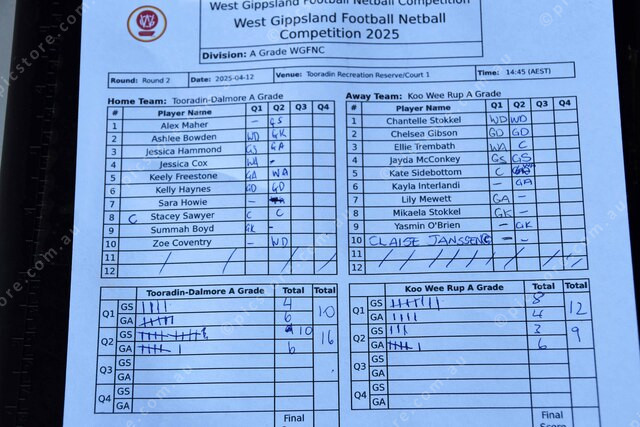 West Gippsland Football Netball Competition
West Gippsland Football Netball
Competition 2025
Division: A Grade WGFNC
Round: Round 2 Date: 2025-04-12 Venue: Tooradin Recreation Reserve/Court 1 Time: 14:45 (AEST)
Home Team: Tooradin-Dalmore A Grade
# Player Name Q1 Q2 Q3 Q4
1 Alex Maher – GS
2 Ashlee Bowden WD GK
3 Jessica Hammond GS GA
4 Jessica Cox WA -
5 Keely Freestone GA WA
6 Kelly Haynes GD GD
7 Sara Howie –
8 C Stacey Sawyer C C
9 Summah Boyd GK –
10 Zoe Coventry – WD
11
12
Away Team: Koo Wee Rup A Grade
# Player Name Q1 Q2 Q3 Q4
1 Chantelle Stokkel WD WD
2 Chelsea Gibson GD GD
3 Ellie Trembath WA C
4 Jayda McConkey GS GS
5 Kate Sidebottom C
6 Kayla Interlandi – GA
7 Lily Mewett GA –
8 Mikaela Stokkel GK –
9 Yasmin O'Brien – GK
10 CLAISE JANSSENS – –
11
12
Tooradin-Dalmore A Grade Total Total
Q1 GS 4 10
GA 6
Q2 GS 10 16
GA 6
Q3 GS
GA
Q4 GS
GA
Final
Koo Wee Rup A Grade Total Total
Q1 GS 8 12
GA 4
Q2 GS 3 9
GA 6
Q3 GS
GA
Q4 GS
GA
Final
Score